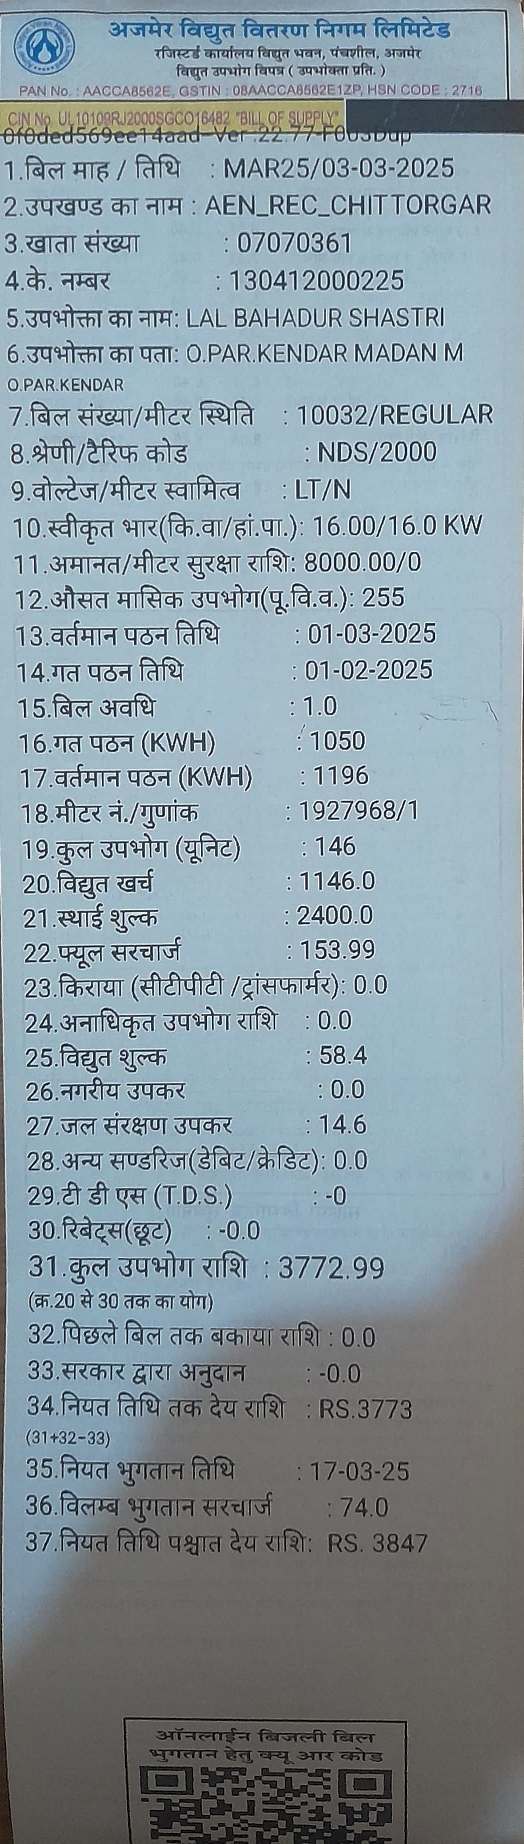 अजमेर विद्युत वितरण निगम लिमिटेड
रजिस्टर्ड कार्यालय विद्युत भवन, पंचशील, अजमेर
विद्युत उपभोग विपत्र ( उपभोक्ता प्रति. )
PAN No. : AACCA8562E, GSTIN : 08AACCA8562E1ZP, HSN CODE : 2716
CIN No. UL10109RJ2000SGCO16482 "BILL OF SUPPLY"
0f0ded569ee14aad-Ver :22.77-F003Dup
1.बिल माह / तिथि : MAR25/03-03-2025
2.उपखण्ड का नाम : AEN_REC_CHITTORGAR
3.खाता संख्या : 07070361
4.के. नम्बर : 130412000225
5.उपभोक्ता का नाम: LAL BAHADUR SHASTRI
6.उपभोक्ता का पता: O.PAR.KENDAR MADAN M
O.PAR.KENDAR
7.बिल संख्या/मीटर स्थिति : 10032/REGULAR
8.श्रेणी/टैरिफ कोड : NDS/2000
9.वोल्टेज/मीटर स्वामित्व : LT/N
10.स्वीकृत भार(कि.वा/हां.पा.): 16.00/16.0 KW
11.अमानत/मीटर सुरक्षा राशि: 8000.00/0
12.औसत मासिक उपभोग(पू.वि.व.): 255
13.वर्तमान पठन तिथि : 01-03-2025
14.गत पठन तिथि : 01-02-2025
15.बिल अवधि : 1.0
16.गत पठन (KWH) : 1050
17.वर्तमान पठन (KWH) : 1196
18.मीटर नं./गुणांक : 1927968/1
19.कुल उपभोग (यूनिट) : 146
20.विद्युत खर्च : 1146.0
21.स्थाई शुल्क : 2400.0
22.फ्यूल सरचार्ज : 153.99
23.किराया (सीटीपीटी /ट्रांसफार्मर): 0.0
24.अनाधिकृत उपभोग राशि : 0.0
25.विद्युत शुल्क : 58.4
26.नगरीय उपकर : 0.0
27.जल संरक्षण उपकर : 14.6
28.अन्य सण्डरिज(डेबिट/क्रेडिट): 0.0
29.टी डी एस (T.D.S.) : -0
30.रिबेट्स(छूट) : -0.0
31.कुल उपभोग राशि : 3772.99
(क्र.20 से 30 तक का योग)
32.पिछले बिल तक बकाया राशि : 0.0
33.सरकार द्वारा अनुदान : -0.0
34.नियत तिथि तक देय राशि : RS.3773
(31+32-33)
35.नियत भुगतान तिथि : 17-03-25
36.विलम्ब भुगतान सरचार्ज : 74.0
37.नियत तिथि पश्चात देय राशि: RS. 3847
ऑनलाईन बिजली बिल
भुगतान हेतु क्यू आर कोड